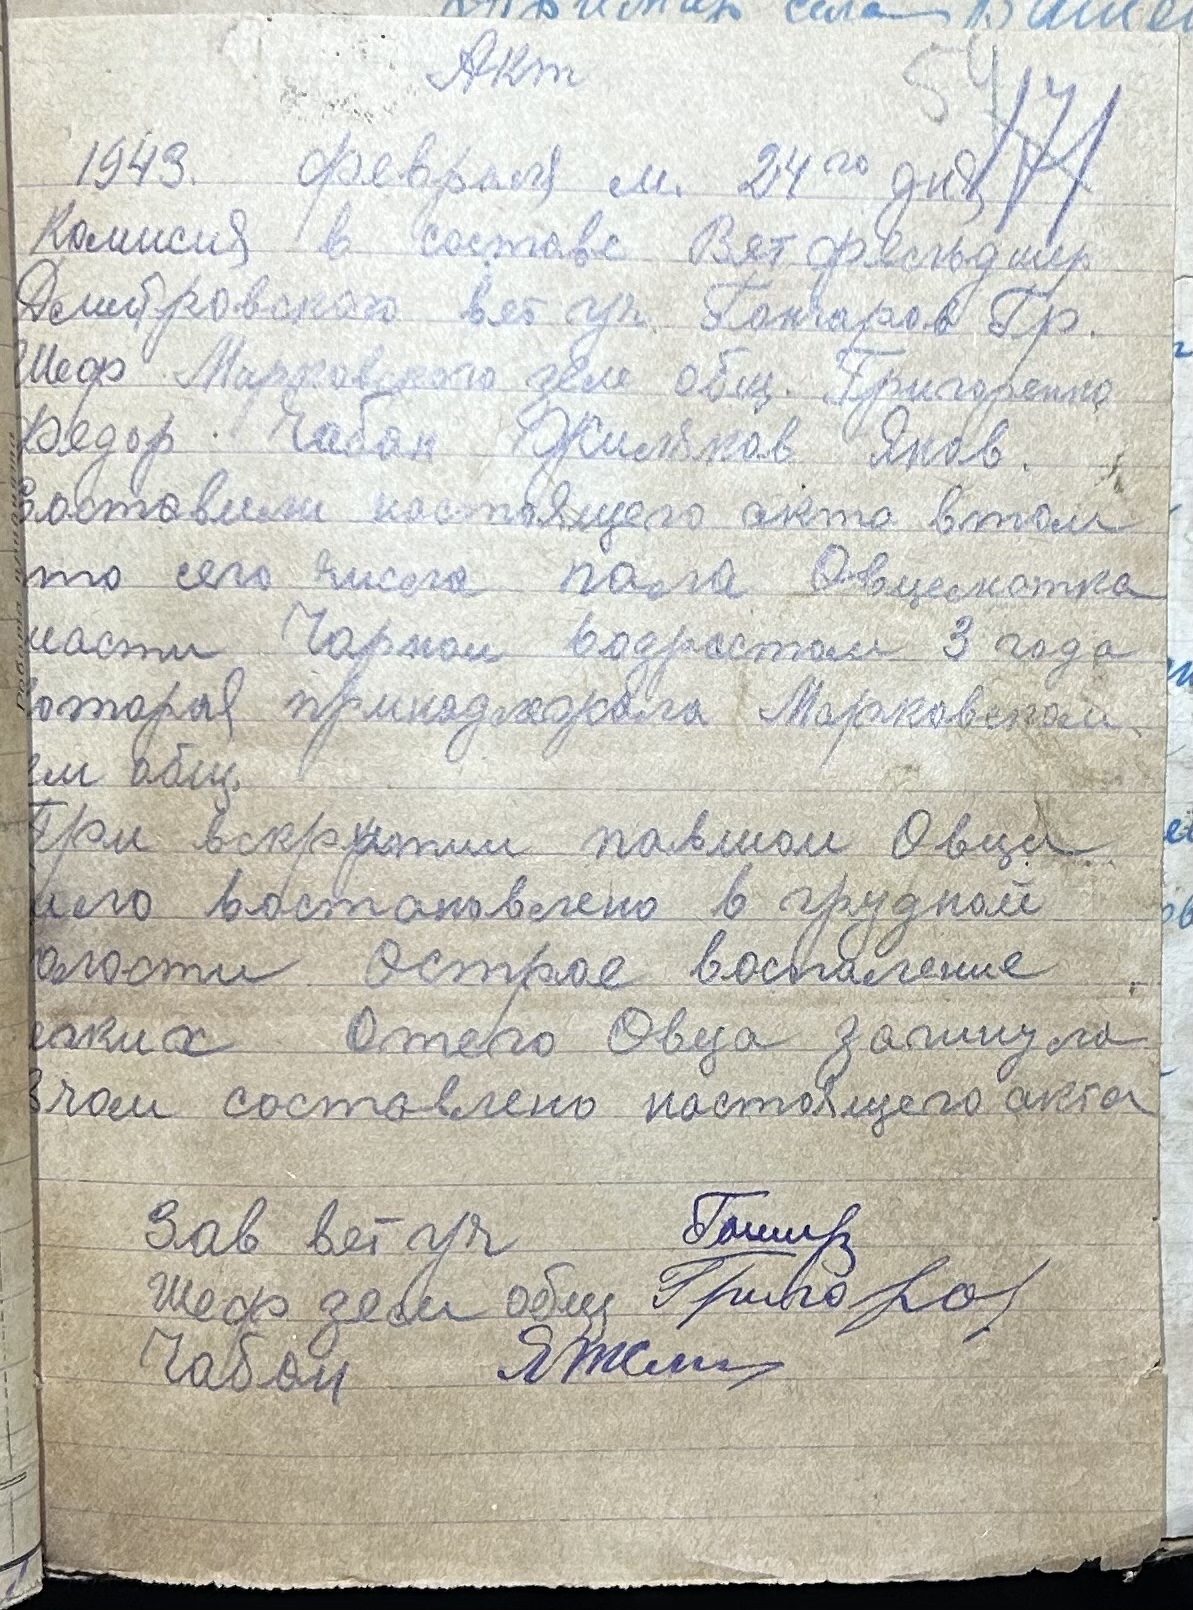 Акт
54
1943. февраля м. 24го дня
Комисия в составе Вят фельдшер
Дмитровского вет уч. Гончаров Гр.
Шеф Марковского зем общ. Григоренко
Федор. Чабан Жилков Яков.
Составили настоящего акта втом
то сего числа пала Овцематка
масти Чорной водростом 3 года
которая принадлежала Марковском
ем общ.
При вскрытии павшои Овци
ыло востановлено в грудной
олости острое воспаление
егких Отего Овца загинула
Вчом составлено настоящего акта
Зав вет уч
Шеф зем общ
Чабан